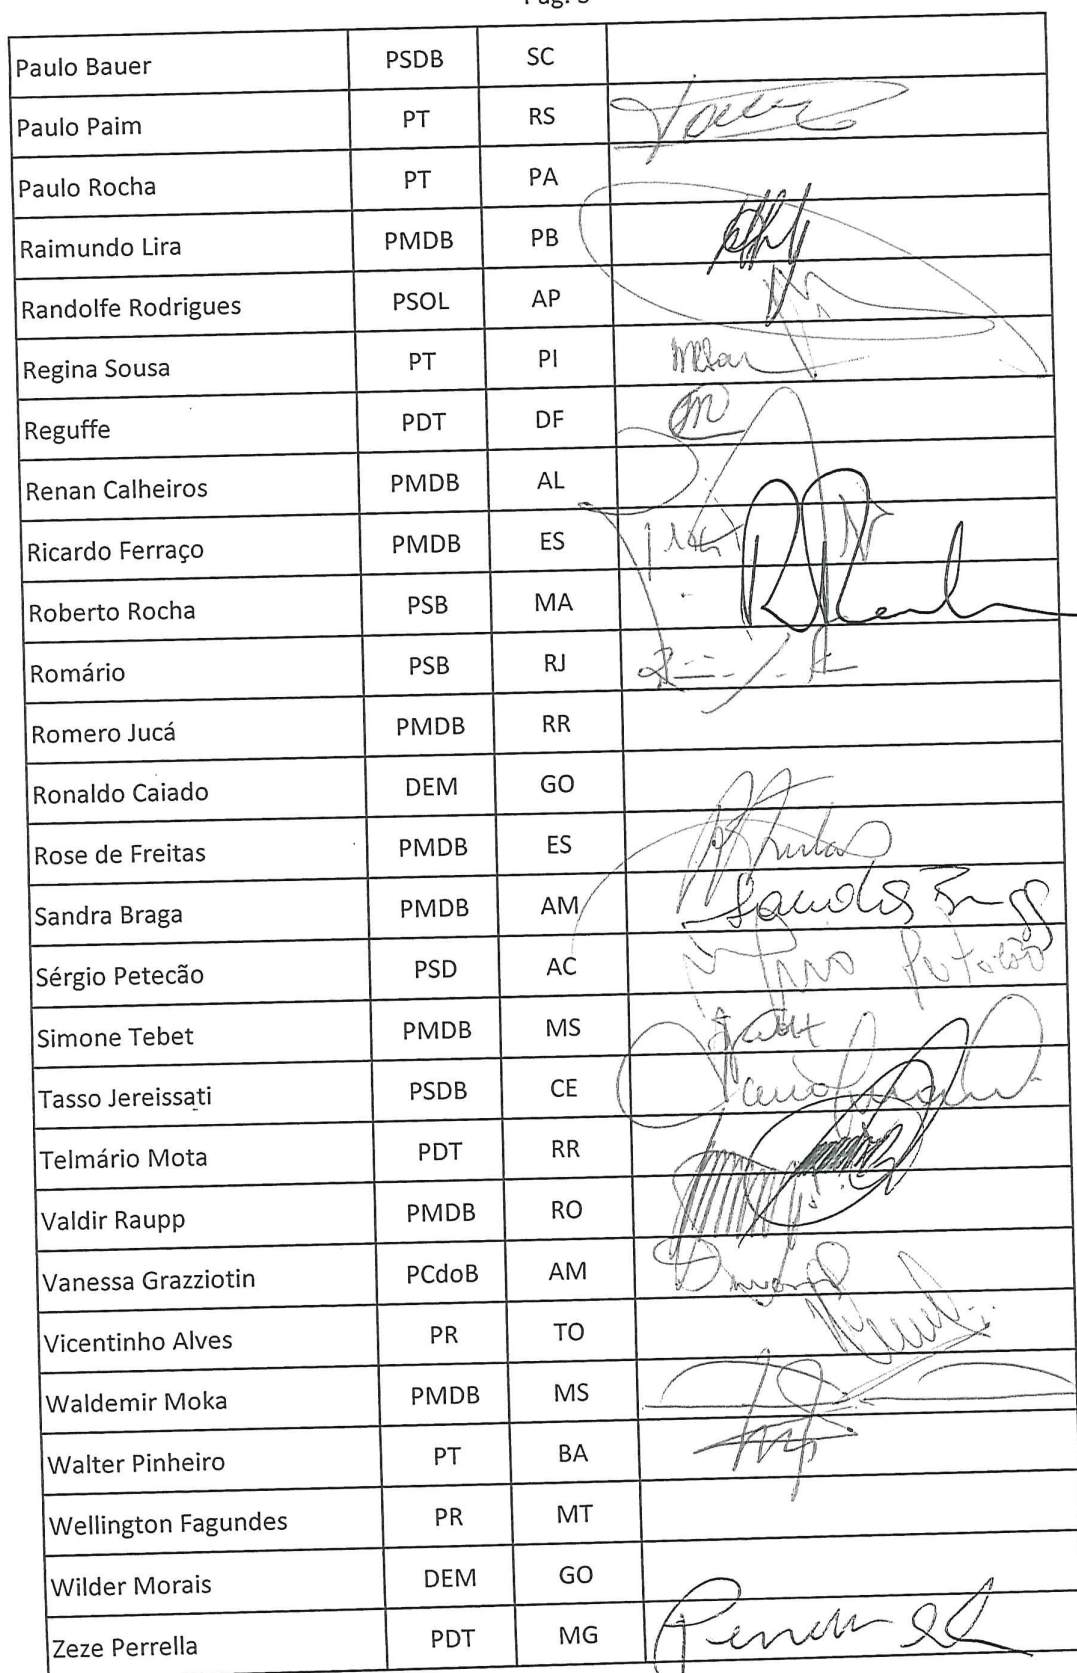 Paulo Bauer PSDB SC
Paulo Paim PT RS
Paulo Rocha PT PA
Raimundo Lira PMDB PB
Randolfe Rodrigues PSOL AP
Regina Sousa PT PI
Reguffe PDT DF
Renan Calheiros PMDB AL
Ricardo Ferraço PMDB ES
Roberto Rocha PSB MA
Romário PSB RJ
Romero Jucá PMDB RR
Ronaldo Caiado DEM GO
Rose de Freitas PMDB ES
Sandra Braga PMDB AM Sandra Braga
Sérgio Petecão PSD AC
Simone Tebet PMDB MS
Tasso Jereissati PSDB CE
Telmário Mota PDT RR
Valdir Raupp PMDB RO
Vanessa Grazziotin PCdoB AM
Vicentinho Alves PR TO
Waldemir Moka PMDB MS
Walter Pinheiro PT BA
Wellington Fagundes PR MT
Wilder Morais DEM GO
Zeze Perrella PDT MG